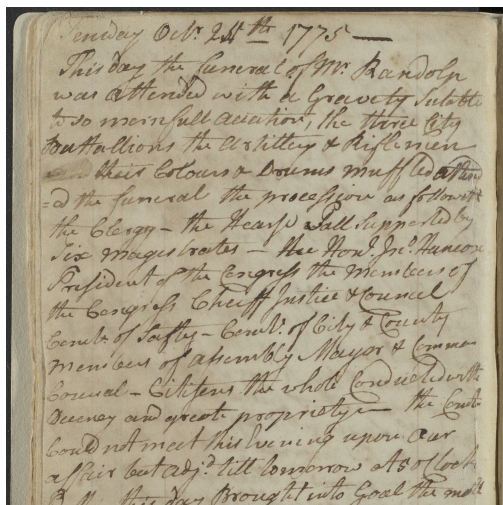 Tuesday Octr. 24th 1775 —
This day the funeral of Mr. Randolp
was attended with a Gravety Sutable
to so mornfull occation, the three City
Battallions the Artillery & Riflemen
their Colours & Drums muffled atten
=d the funeral the procession as follows
the Clergy — the Hearse Pall Supported by
Six magistrates — the Honl. Jno. Hancock
President of the Congress the Members of
the Congress Cheiff Justice & Councel
Comte. of Safty — Comte. of City & County
members of Assembly Mayor & Common
Councel — Citizens the whole Conducted with
Decency and greate propriety — the Comte.
Could not meet this Evening upon our
affair but adjd. till tomorrow at 5 oClock
this day Brought into Goal the